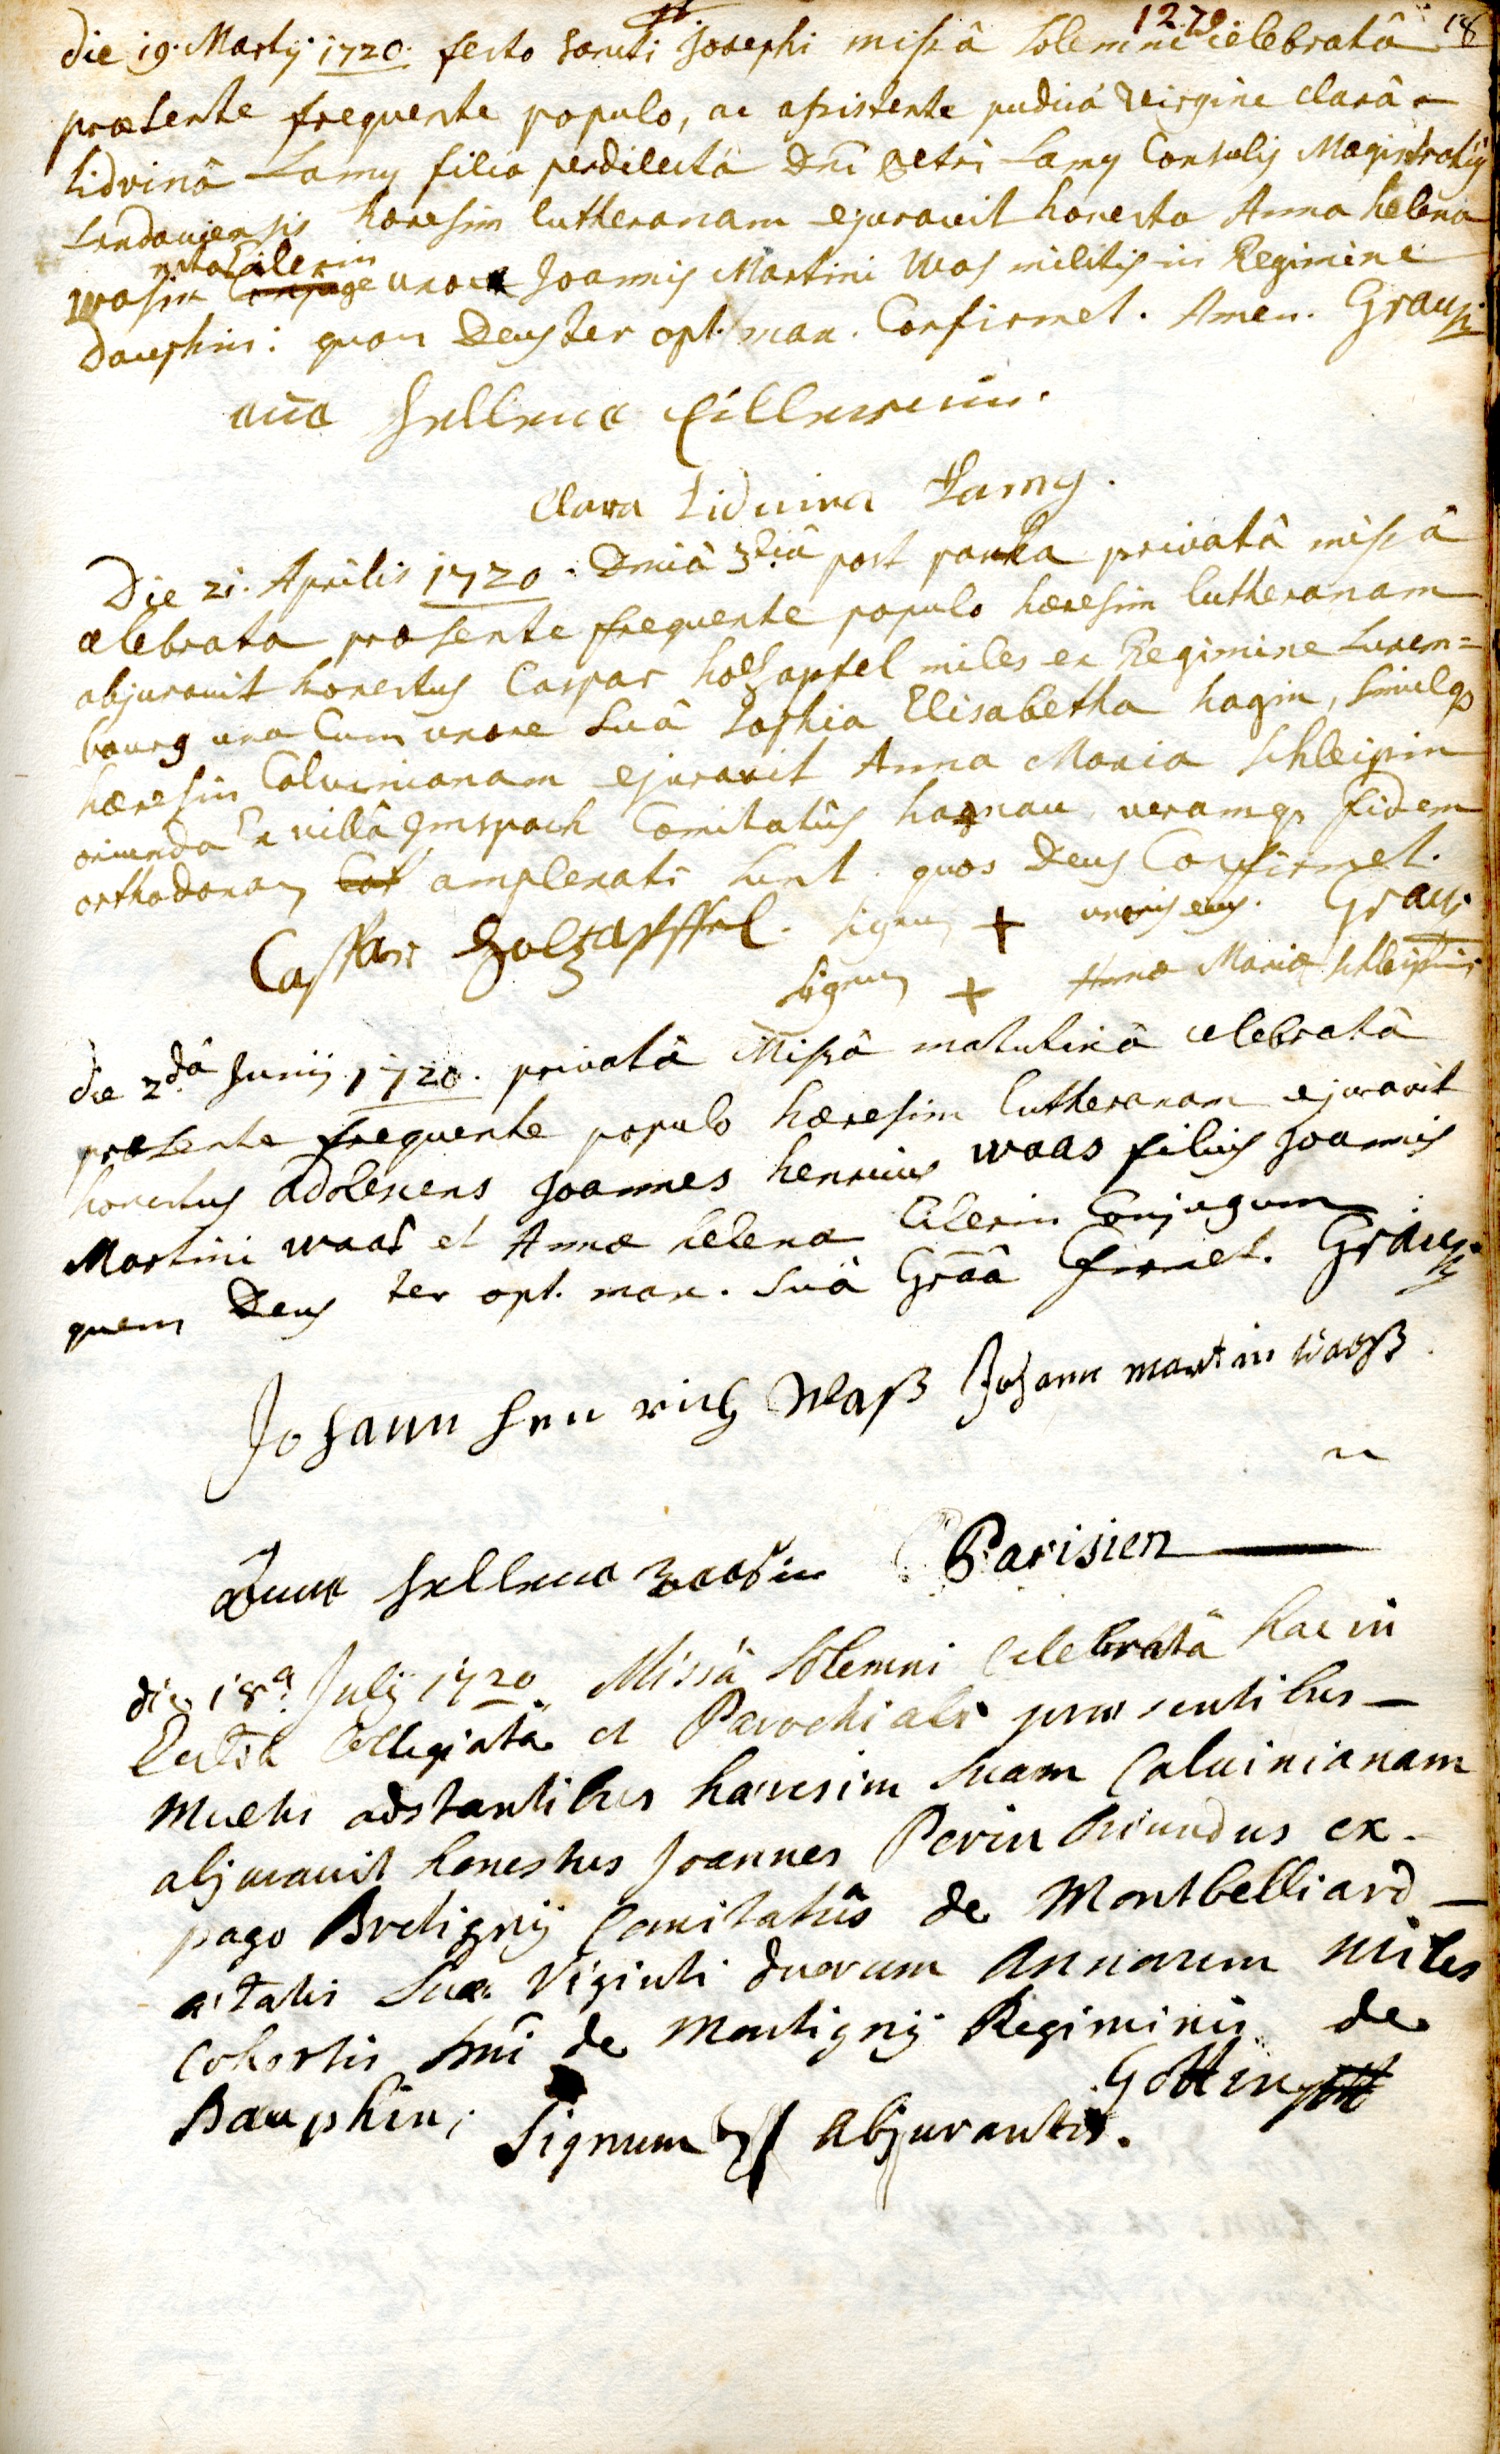 1279 18
die 19. Martij 1720. festo Sancti Josephi missâ solemni celebratâ
præsente frequente populo, ac assistente pudicâ virgine clarâ
Lidvinâ Lamy filia perdilectâ Dni petri Lamy Consulis Magistratûs
Landaviensis hæresim lutheranam ejuravit honesta Anna helena
nata Cilerin
wasin Conjuge uxor Joannis Martini Was militis in Regimine
Dauphini: quam Deus ter opt. max. Confirmet. Amen. Grausz
anna hellena Cillerin.
Clara Liduina Lamy.
Die 21. Aprilis 1720. Dnicâ 3tiâ post pascha privatâ missâ
celebrata præsente frequente populo hæresim lutheranam
abjuravit honestus Caspar holtzapfel miles ex Regimine Luxem=
bourg una Cum uxore suâ Sophia Elisabetha hagin, simulq
hæresin Calvinianam ejuravit Anna Maria Schleipin
oriunda Ex villâ Imspach Comitatûs hanau veramq fidem
orthodoxam amplexati sunt. quos Deus Confirmet.
Caspar Holtzapffel. signum + uxoris ejus. Grausz
signum + Annæ Mariæ Schleipin
die 2dâ Junij 1720. privatâ Missâ matutinâ celebratâ
præsente frequente populo hæresim lutheranam ejuravit
honestus adolescens Joannes henricus waas filius Joannis
Martini waas et Annæ helena Cilerin Conjugum:
quem Deus ter opt. max. suâ Grãâ Cfirmet. Grausz
Johann henrich Waß Johann martin waaß
Anna hellena waasin Parisien
die 18a Julij 1720 Missâ Solemni Celebratâ hac in
Ecclesiâ Collegiatâ et Parochiali præsentibus
multis adstantibus hæresim suam Calvinianam
abjuravit honestus Joannes Perin Oriundus ex
pago Bretignij Comitatûs de Montbelliard
ætatis suæ Viginti duorum Annorum miles
Cohortis Dni de Montignij Regiminis de
Dauphin; Gotting
Signum abjurantis.